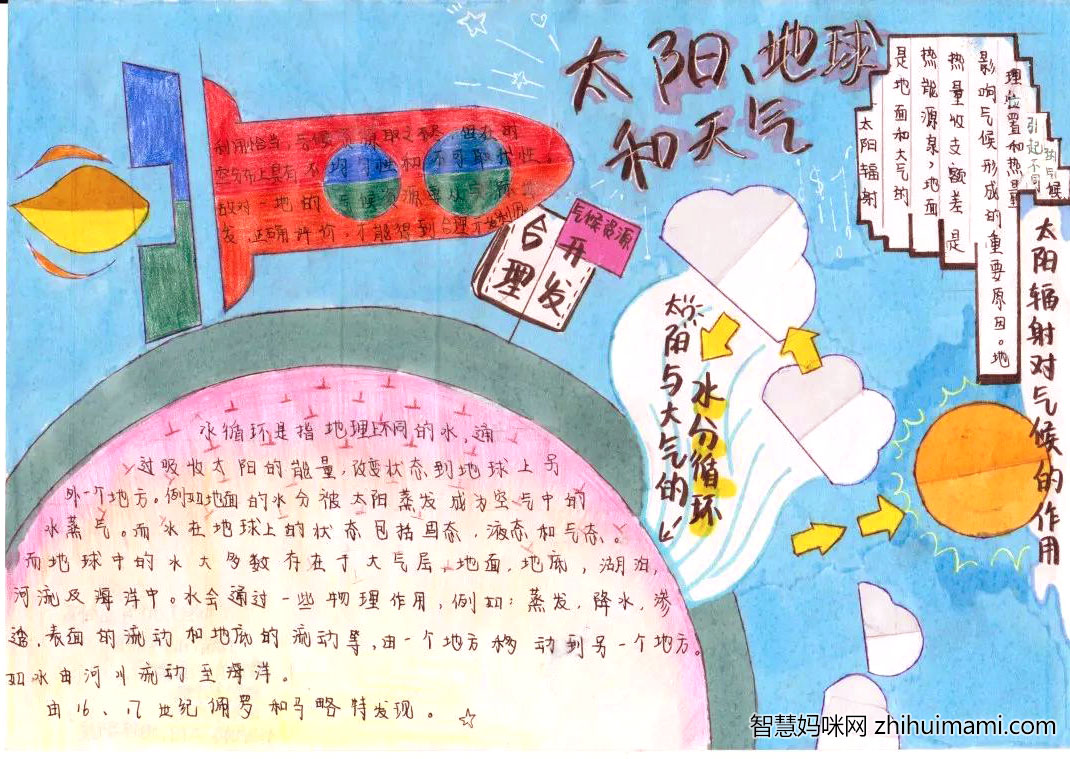 太阳、地球
和天气
利用恰当，气候
空分布上具有不均匀性和不可取代性。
故对一地的气候
发，正确评价，
合理
开发
气候资源
太阳辐射
是地面和大气的
热能源泉，地面
热量收支额差是
影响气候形成的重要原因。地
理位置和热量
引起不同
的气候
太阳辐射对气候的作用
太阳与大气的
水分循环
水循环是指地理上不同的水，通
过吸收太阳的能量，改变状态到地球上另
外一个地方。例如地面的水分被太阳蒸发成为空气中的
水蒸气。而水在地球上的状态包括固态，液态和气态。
而地球中的水大多数存在于大气层，地面，地底，湖泊，
河流及海洋中。水会通过一些物理作用，例如：蒸发，降水，渗
透，表面的流动和地底的流动等，由一个地方移动到另一个地方。
如水由河川流动至海洋。
由16、17世纪佩罗和马略特发现。
智慧妈咪网 zhihuimami.com